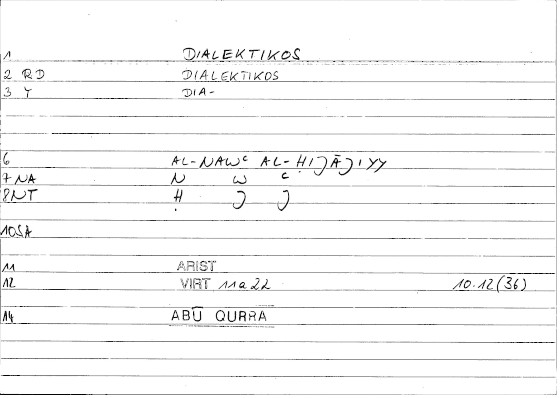 1 DIALEKTIKOS
2 RD DIALEKTIKOS
3 Y DIA-
6 AL-NAWᶜ AL-ḤIJĀJIYY
7 NA N W ᶜ
8 NT Ḥ J J
10 SA
11 ARIST
12 VIRT 11a22 10.12(36)
14 ABŪ QURRA